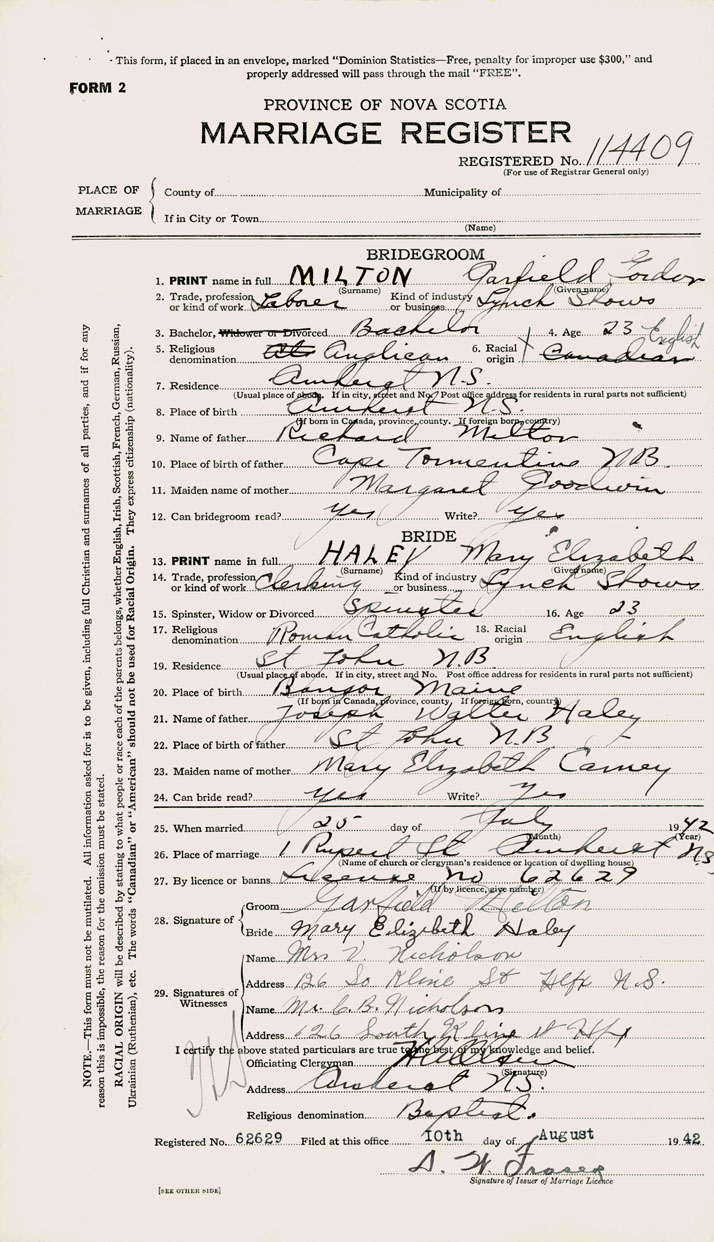 This form, if placed in an envelope, marked "Dominion Statistics—Free, penalty for improper use $300," and
properly addressed will pass through the mail "FREE".
FORM 2
PROVINCE OF NOVA SCOTIA
MARRIAGE REGISTER
REGISTERED No. 114409
(For use of Registrar General only)
PLACE OF MARRIAGE
County of Municipality of
If in City or Town
(Name)
BRIDEGROOM
1. PRINT name in full MILTON Garfield Gordon
(Surname) (Given name)
2. Trade, profession or kind of work Laborer Kind of industry or business Lynch Shows
3. Bachelor, Widower or Divorced Bachelor 4. Age 23
5. Religious denomination Anglican 6. Racial origin Canadian English
7. Residence Amherst N.S.
(Usual place of abode. If in city, street and No. Post office address for residents in rural parts not sufficient)
8. Place of birth Amherst N.S.
(If born in Canada, province, county. If foreign born, country)
9. Name of father Richard Milton
10. Place of birth of father Cape Tormentine N.B.
11. Maiden name of mother Margaret Goodwin
12. Can bridegroom read? yes Write? yes
BRIDE
13. PRINT name in full HALEY Mary Elizabeth
(Surname) (Given name)
14. Trade, profession or kind of work Clerking Kind of industry or business Lynch Shows
15. Spinster, Widow or Divorced Spinster 16. Age 23
17. Religious denomination Roman Catholic 18. Racial origin English
19. Residence St John N.B
(Usual place of abode. If in city, street and No. Post office address for residents in rural parts not sufficient)
20. Place of birth Bangor Maine
(If born in Canada, province, county If foreign born, country)
21. Name of father Joseph Walter Haley
22. Place of birth of father St John N.B
23. Maiden name of mother Mary Elizabeth Carney
24. Can bride read? yes Write? yes
25. When married 25 day of July 1942
(Month) (Year)
26. Place of marriage 1 Rupert St Amherst N.S.
(Name of church or clergyman's residence or location of dwelling house)
27. By licence or banns License No 62629
(If by licence, give number)
28. Signature of
Groom Garfield Milton
Bride Mary Elizabeth Haley
29. Signatures of Witnesses
Name Mrs V. Nicholson
Address 126 So Kline St Hlfx N.S.
Name Mr. C. B. Nicholson
Address 126 South Kline st Hfx
I certify the above stated particulars are true to the best of my knowledge and belief.
Officiating Clergyman
(Signature)
Address Amherst N.S.
Religious denomination Baptist.
Registered No. 62629 Filed at this office 10th day of August 1942
D. W. Fraser
Signature of Issuer of Marriage Licence
[SEE OTHER SIDE]
NOTE.—This form must not be mutilated. All information asked for is to be given, including full Christian and surnames of all parties, and if for any
reason this is impossible, the reason for the omission must be stated.
RACIAL ORIGIN will be described by stating to what people or race each of the parents belongs, whether English, Irish, Scottish, French, German, Russian,
Ukrainian (Ruthenian), etc. The words "Canadian" or "American" should not be used for Racial Origin. They express citizenship (nationality).